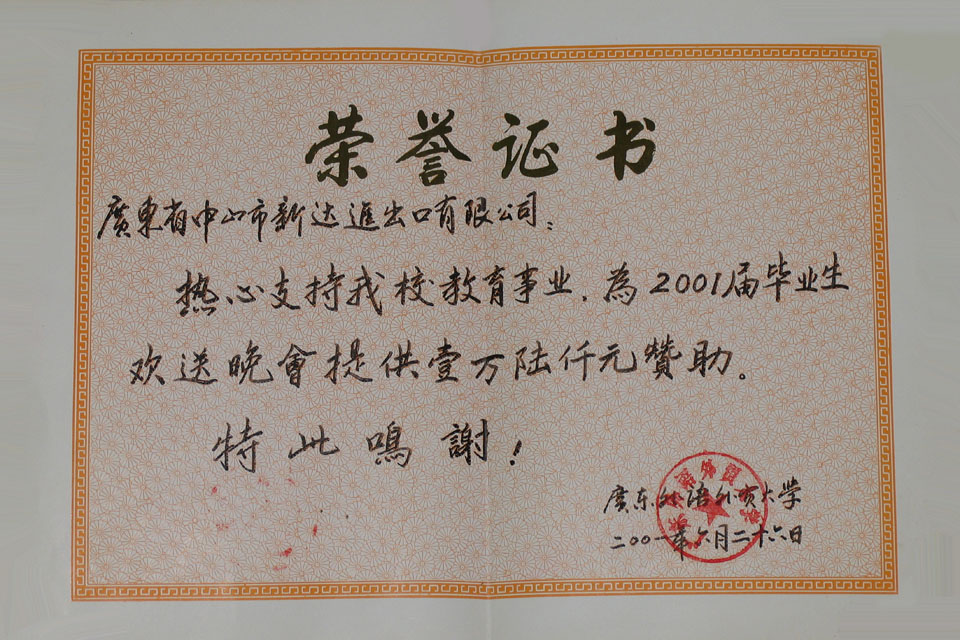 荣誉证书
廣東省中山市新达進出口有限公司：
热心支持我校教育事业，為2001届毕业生
欢送晚會提供壹万陆仟元贊助。
特此鳴謝！
廣东外语外贸大学
二00一年六月二十六日